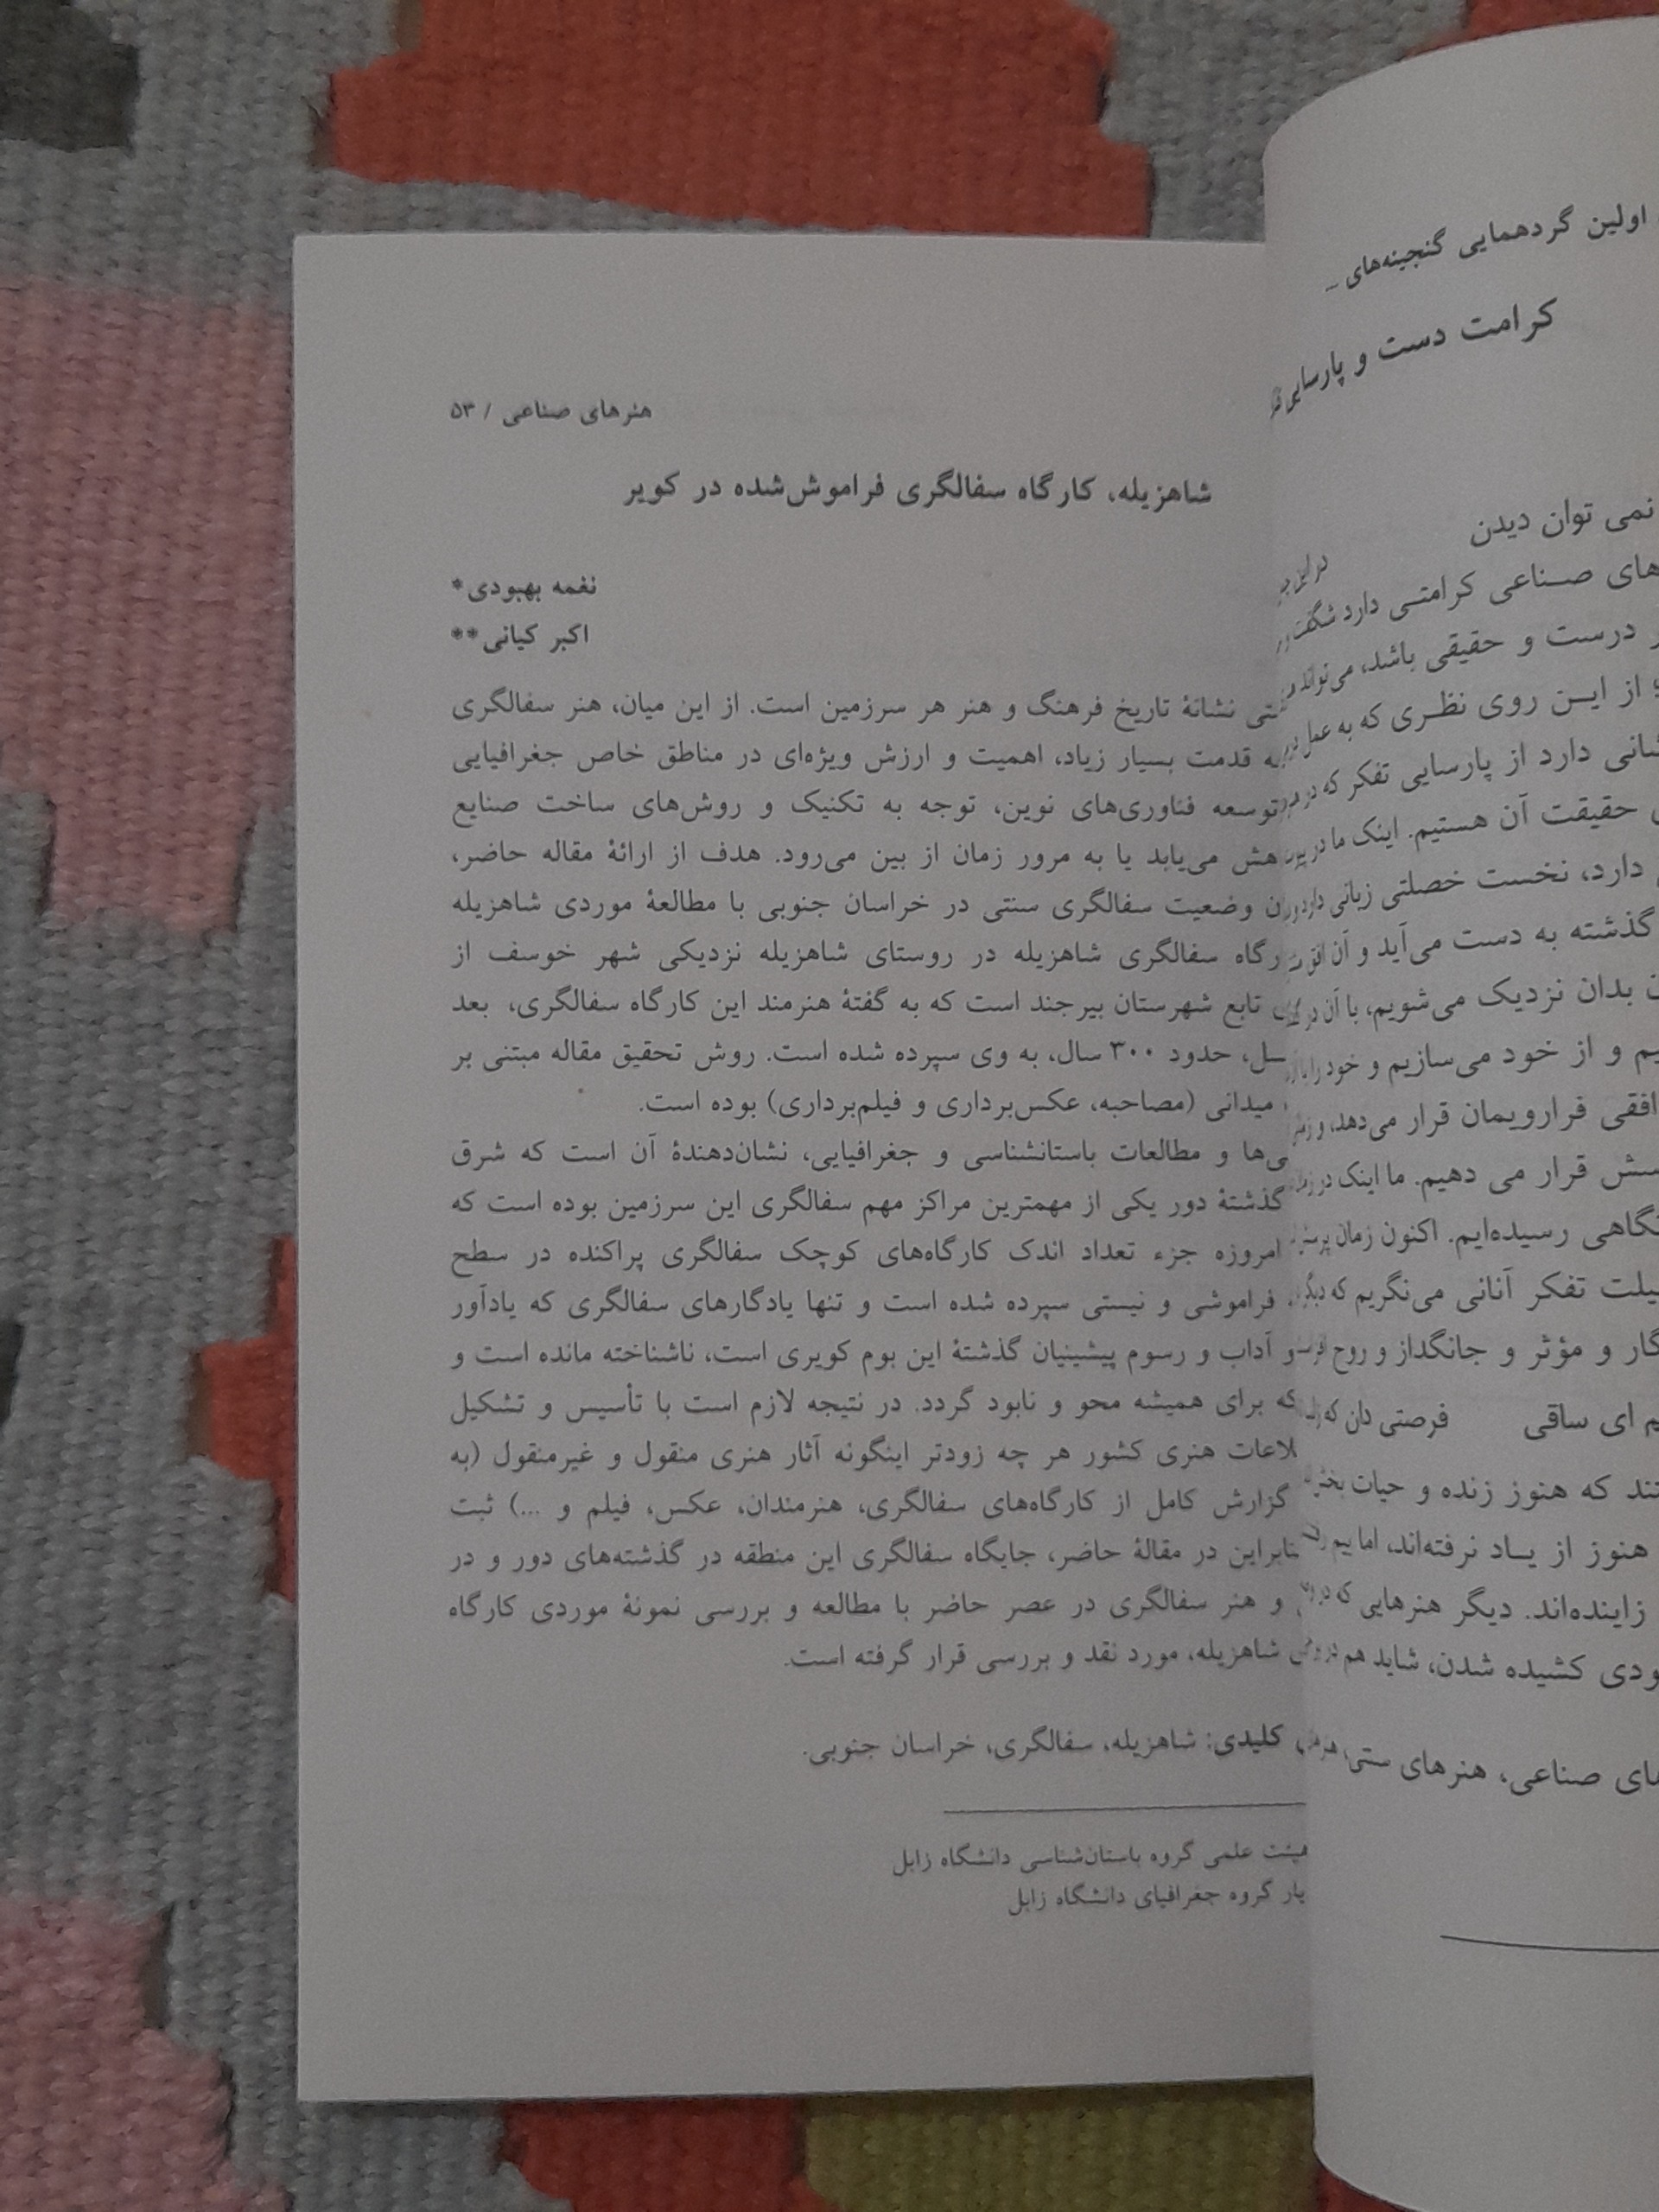 هنرهای صناعی / ۵۳
شاهزیله، کارگاه سفالگری فراموش‌شده در کویر
نغمه بهبودی*
اکبر کیانی**
نشانهٔ تاریخ فرهنگ و هنر هر سرزمین است. از این میان، هنر سفالگری
قدمت بسیار زیاد، اهمیت و ارزش ویژه‌ای در مناطق خاص جغرافیایی
توسعه فناوری‌های نوین، توجه به تکنیک و روش‌های ساخت صنایع
می‌یابد یا به مرور زمان از بین می‌رود. هدف از ارائهٔ مقاله حاضر،
وضعیت سفالگری سنتی در خراسان جنوبی با مطالعهٔ موردی شاهزیله
سفالگری شاهزیله در روستای شاهزیله نزدیکی شهر خوسف از
تابع شهرستان بیرجند است که به گفتهٔ هنرمند این کارگاه سفالگری، بعد
حدود ۳۰۰ سال، به وی سپرده شده است. روش تحقیق مقاله مبتنی بر
میدانی (مصاحبه، عکس‌برداری و فیلم‌برداری) بوده است.
و مطالعات باستانشناسی و جغرافیایی، نشان‌دهندهٔ آن است که شرق
گذشتهٔ دور یکی از مهمترین مراکز مهم سفالگری این سرزمین بوده است که
امروزه جزء تعداد اندک کارگاه‌های کوچک سفالگری پراکنده در سطح
فراموشی و نیستی سپرده شده است و تنها یادگارهای سفالگری که یادآور
و آداب و رسوم پیشینیان گذشتهٔ این بوم کویری است، ناشناخته مانده است و
که برای همیشه محو و نابود گردد. در نتیجه لازم است با تأسیس و تشکیل
هنری کشور هر چه زودتر اینگونه آثار هنری منقول و غیرمنقول (به
گزارش کامل از کارگاه‌های سفالگری، هنرمندان، عکس، فیلم و ...) ثبت
در مقالهٔ حاضر، جایگاه سفالگری این منطقه در گذشته‌های دور و در
و هنر سفالگری در عصر حاضر با مطالعه و بررسی نمونهٔ موردی کارگاه
شاهزیله، مورد نقد و بررسی قرار گرفته است.
کلیدی: شاهزیله، سفالگری، خراسان جنوبی.
علمی گروه باستان‌شناسی دانشگاه زابل
گروه جغرافیای دانشگاه زابل
اولین گردهمایی گنجینه‌های ...
کرامت دست و پارسایی
نمی توان دیدن
صناعی کرامتی دارد
درست و حقیقی باشد،
از این روی نظری که به عمل
دارد از پارسایی تفکر که در
حقیقت آن هستیم. اینک ما در
دارد، نخست خصلتی زبانی
گذشته به دست می‌آید و آن
بدان نزدیک می‌شویم، با آن
و از خود می‌سازیم و خود را
افقی فرارویمان قرار می‌دهد،
قرار می دهیم. ما اینک در
رسیده‌ایم. اکنون زمان
تفکر آنانی می‌نگریم که
و مؤثر و جانگداز و روح
ای ساقی فرصتی دان که
که هنوز زنده و حیات
هنوز از یاد نرفته‌اند، اما بیم
زاینده‌اند. دیگر هنرهایی که
کشیده شدن، شاید هم
صناعی، هنرهای سنتی،